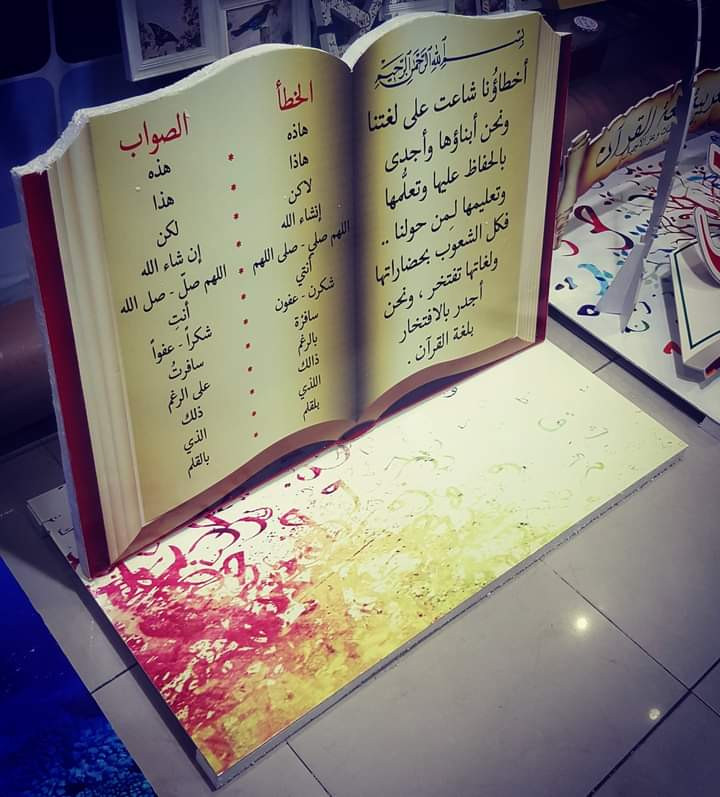 بسم الله الرحمن الرحيم
أخطاؤُنا شاعت على لغتنا
ونحن أبناؤها وأجدى
بالحفاظ عليها وتعلُّمها
وتعليمها لِمن حولنا ..
فكل الشعوب بحضاراتها
ولغاتها تفتخر ، ونحن
أجدر بالافتخار
بلغة القرآن .
الخطأ الصواب
هاذه * هذه
هاذا * هذا
لاكن * لكن
إنشاء الله * إن شاء الله
اللهم صلي - صلى اللهم * اللهم صلّ - صل الله
أنتي * أنتِ
شكرن - عفون * شكراً - عفواً
سافرة * سافرتُ
بالرغم * على الرغم
ذالك * ذلك
اللذي * الذي
بلقلم * بالقلم
القرآن